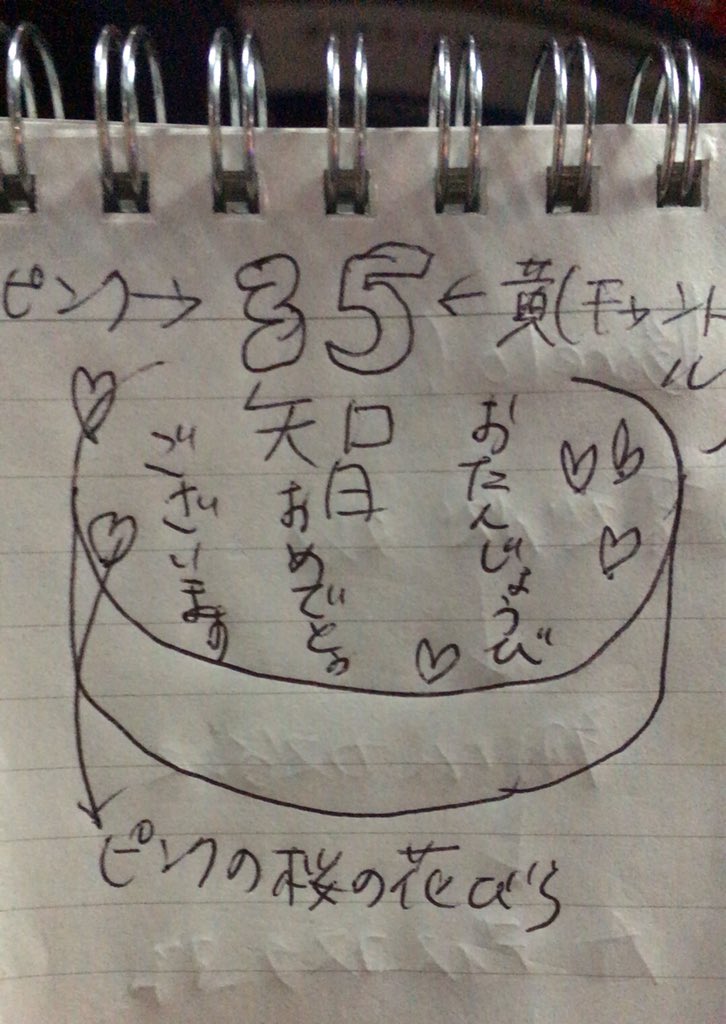 ピンク→ 35 ←黄(キャンドル)
智
おたんじょうび
おめでとう
ございます
ピンクの桜の花びら